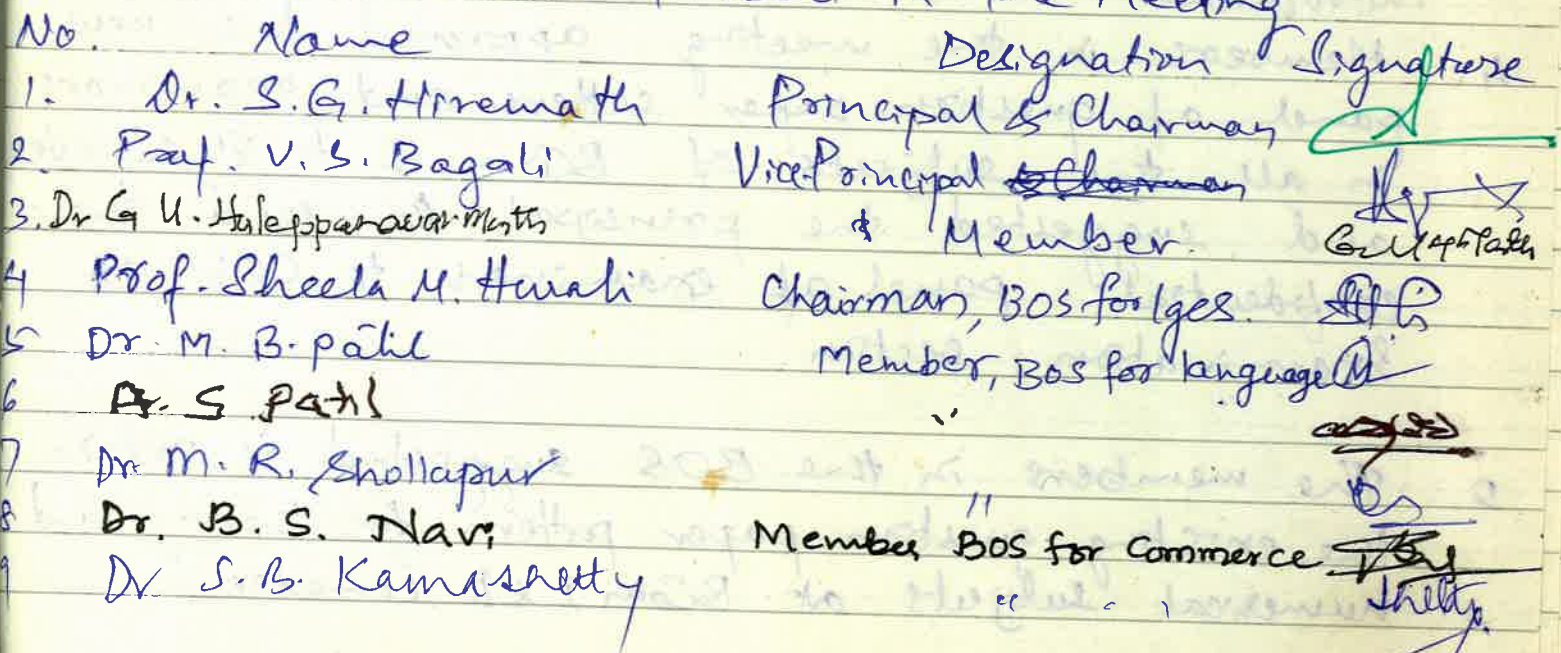 the Meeting
No. Name Designation Signature
1. Dr. S.G. Hiremath Principal & Chairman
2. Prof. V. S. Bagali Vice Principal & Chairman
3. Dr G U. Haleppanavarmath & Member.
4 Prof. Sheela M. Hurali Chairman, BOS for lges.
5 Dr. M. B. pātil Member, BOS for language
6 Dr. S Patil "
7 Dr M. R. Shollapur "
8 Dr. B. S. Navi Member BOS for Commerce
9 Dr S. B. Kamashetty " " Shetty.